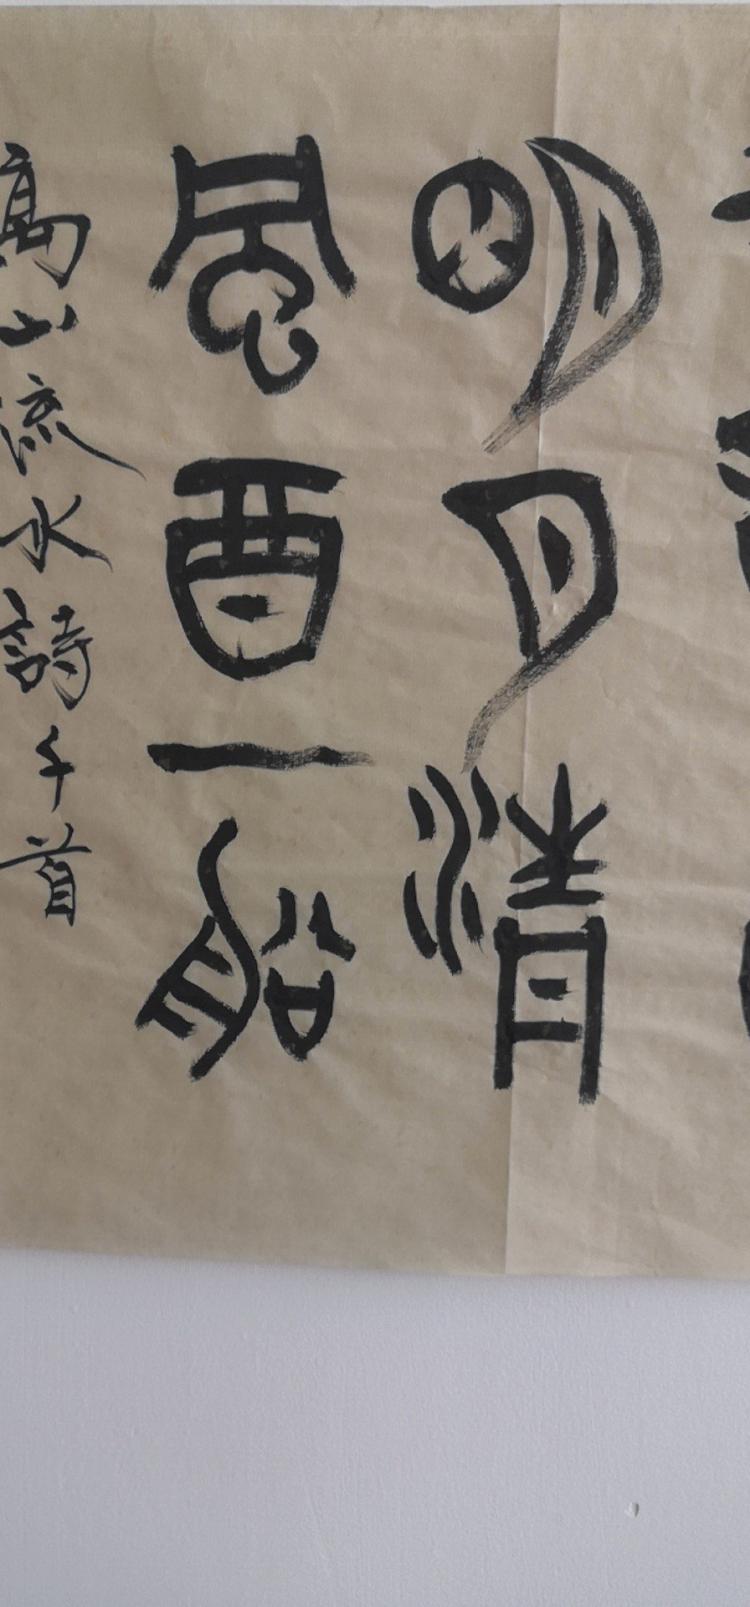 明月清
風酉一船
高山流水詩千首